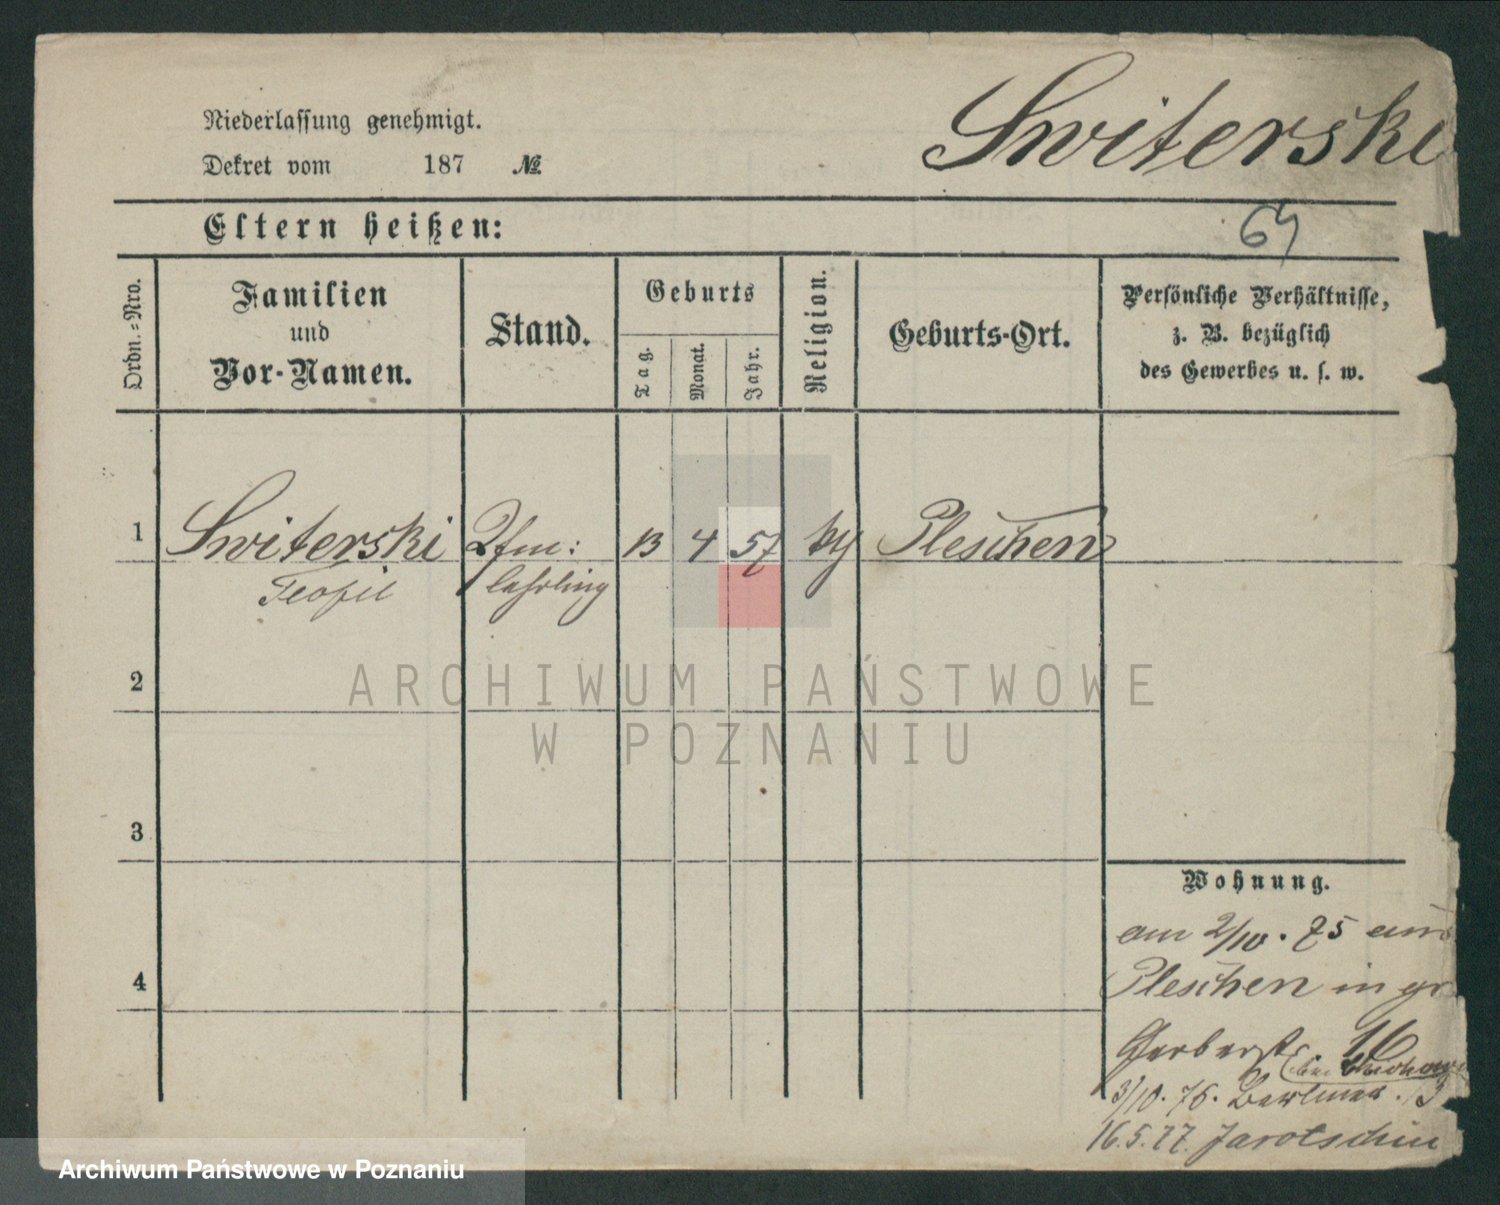 Switerski
Niederlassung genehmigt.
Dekret vom 187 №
64
Eltern heißen:
Ordn.=Nro.
Familien
und
Vor-Namen.
Stand.
Geburts
Tag.
Monat.
Jahr.
Religion.
Geburts-Ort.
Persönliche Verhältnisse,
z. B. bezüglich
des Gewerbes u. s. w.
1 Switerski 13 4 57 Pleschen
Teofil lehrling
2
ARCHIWUM PAŃSTWOWE
W POZNANIU
3
4
Wohnung.
am 2/10. 75 aus
Pleschen in gr
Gerberst 16
3/10. 76. Berliner.
16.5.77. Jarotschin
Archiwum Państwowe w Poznaniu